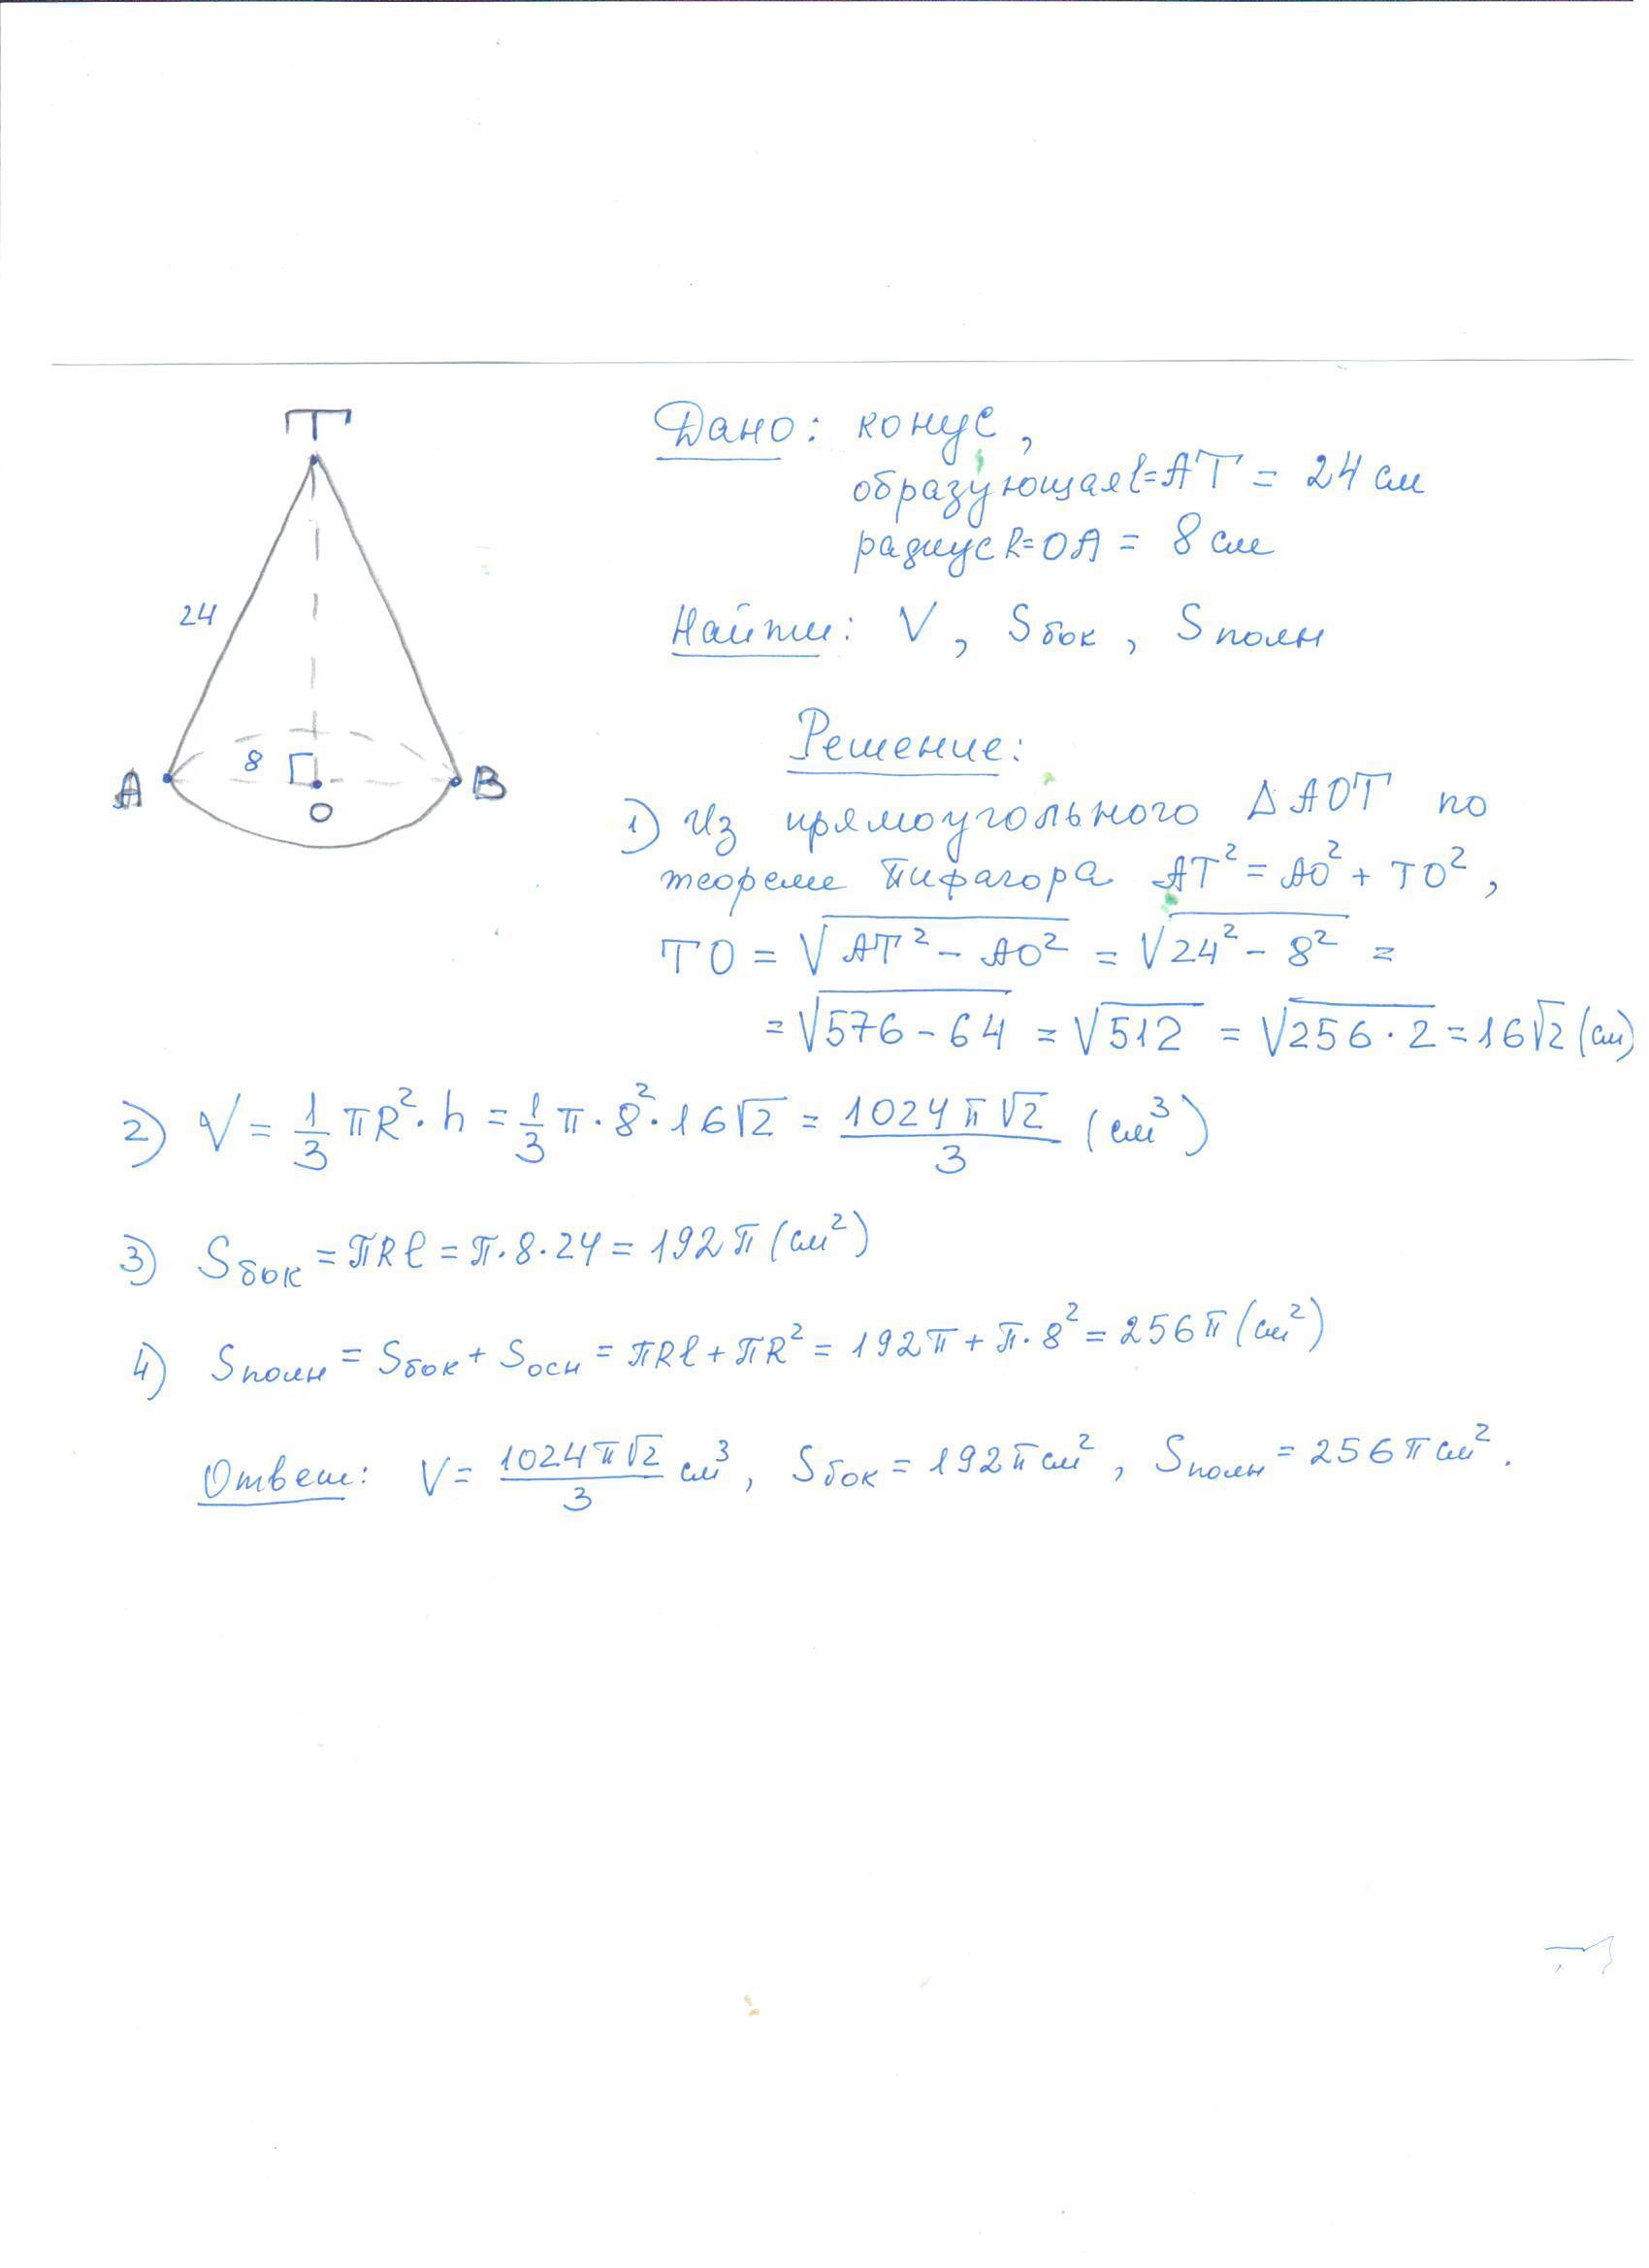 T
24
8
A
O
B
Дано: конус,
образующая l=AT = 24 см
радиус R=OA = 8 см
Найти: V, Sбок, Sполн
Решение:
1) Из прямоугольного ΔAOT по
теореме Пифагора AT² = AO² + TO²,
TO = √(AT² - AO²) = √(24² - 8²) =
= √(576 - 64) = √512 = √(256·2) = 16√2 (см)
2) V = 1/3 πR²·h = 1/3 π·8²·16√2 = 1024π√2/3 (см³)
3) Sбок = πRl = π·8·24 = 192π (см²)
4) Sполн = Sбок + Sосн = πRl + πR² = 192π + π·8² = 256π (см²)
Ответ: V = 1024π√2/3 см³, Sбок = 192π см², Sполн = 256π см².